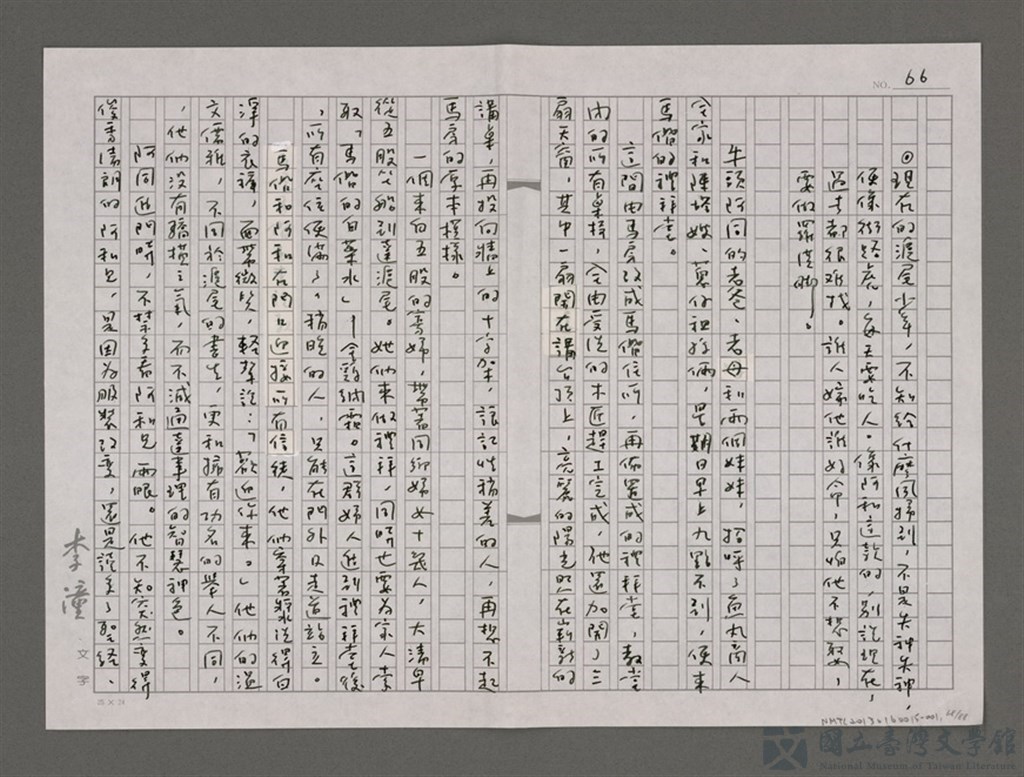 NO. 66
◎現在的滬尾少年，不知給什麼風掃到，不是失神失神，
便像猴經虎，每天要吃人。像阿和這款的，別說現在，
過去都很難找。誰人嫁他誰好命，只怕他不想娶，
要做羅漢腳。
牛頭阿同的老爸、老母和兩個妹妹，招呼了魚丸商人
全家和陳塔嫂、蔥仔祖孫倆，星期日早上九點不到，便來
馬偕的禮拜堂。
這間由馬房改成馬偕住所，再佈置成的禮拜堂，教堂
內的所有桌椅，全由受洗的木匠趕工完成，他還加開了三
扇天窗，其中一扇開在講台頂上，亮麗的陽光照在嶄新的
講桌，再投向牆上的十字架，讓記性稍差的人，再想不起
馬房的原本模樣。
一個來自五股的寡婦，帶著同鄉婦女十幾人，大清早
從五股坐船到達滬尾。她們來做禮拜，同時也要為家人拿
取「馬偕的白藥水」—金雞納霜。這群婦人進到禮拜堂後
，所有座位便滿了，稍晚的人，只能在門外及走道站立。
馬偕和阿和在門口迎接所有信徒，他們穿著漿洗得白
淨的衣褲，面帶微笑，輕聲說：「歡迎你來。」他們的溫
文儒雅，不同於滬尾的書生，更和擁有功名的舉人不同，
，他們沒有驕橫之氣，而不減通達事理的智慧神色。
阿同進門時，不禁多看阿和兄兩眼。他不知突然變得
俊秀清朗的阿和兄，是因為服裝改變，還是說多了聖經、
李潼 文字
25×24
NMTL20130160015-001, 68/88
國立臺灣文學館
National Museum of Taiwan Literature